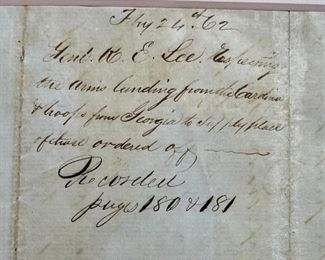 Fby 24th 62
Genl. R. E. Lee. Respecting
the arms landing from the Cardina
& troops from Georgia to supply place
of those ordered off
Recorded
pages 180 & 181